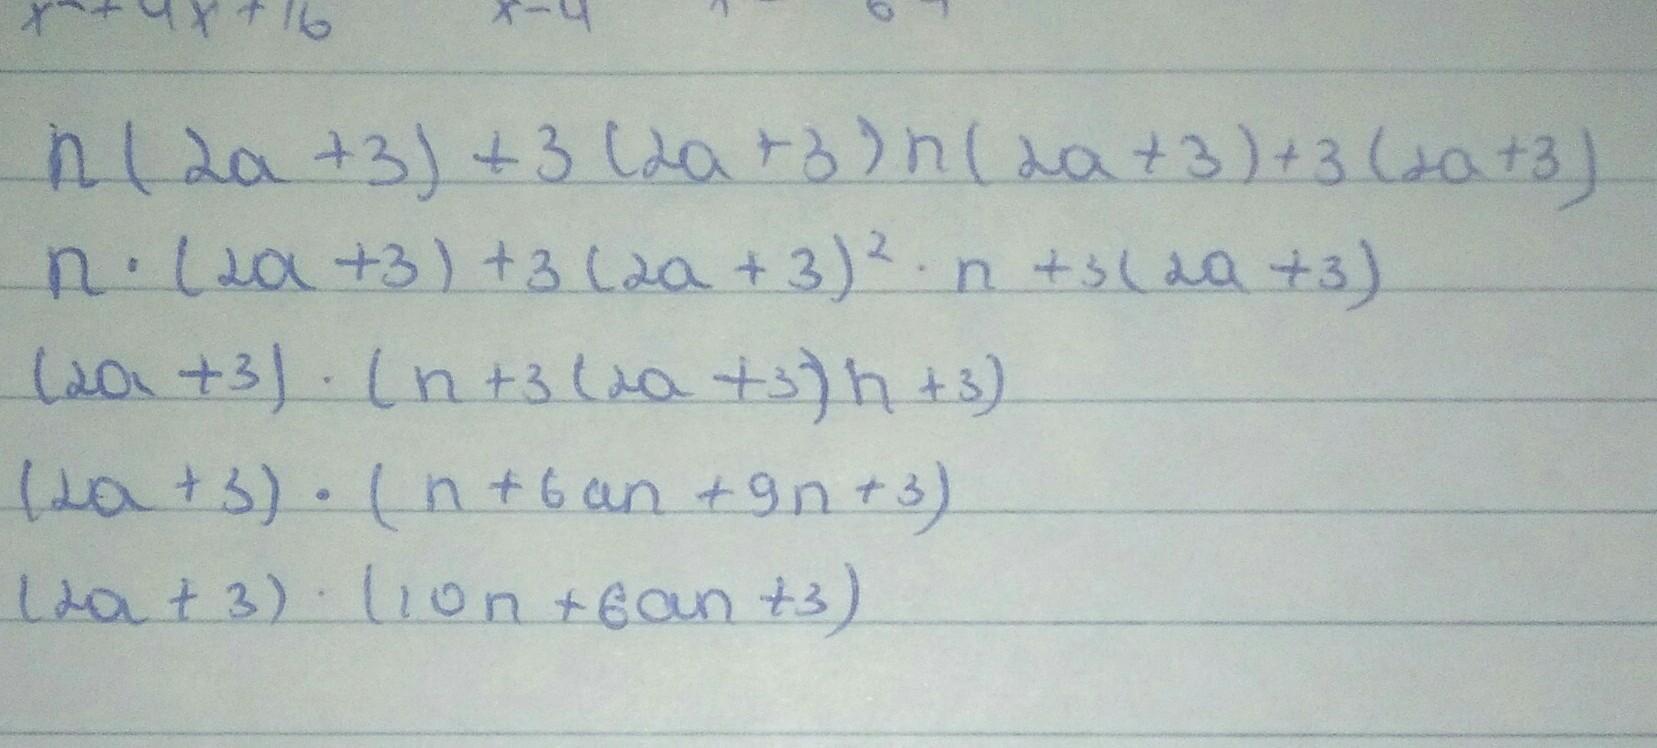 x² + 4x + 16 x - 4
n(2a + 3) + 3(2a + 3)n(2a + 3) + 3(2a + 3)
n · (2a + 3) + 3(2a + 3)² · n + 3(2a + 3)
(2a + 3) · (n + 3(2a + 3)n + 3)
(2a + 3) · (n + 6an + 9n + 3)
(2a + 3) · (10n + 6an + 3)